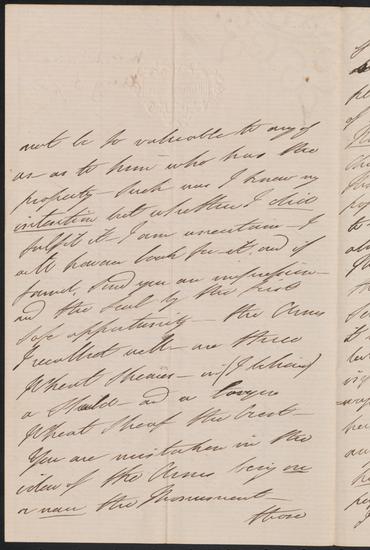 not be so valuable to any of
us as to him who has the
property – Such was I know my
intention but whether I did
fulfil it – I am uncertain – I
will however look for it, and if
found, send you an impression
and the Seal by the first
safe opportunity – the Arms
I recollect well – are three
Wheat Sheaves – in (I believe)
a Shield – and a larger
Wheat Sheaf the Crest –
You are mistaken in the
idea of the Arms being on
or near the Monument –
those